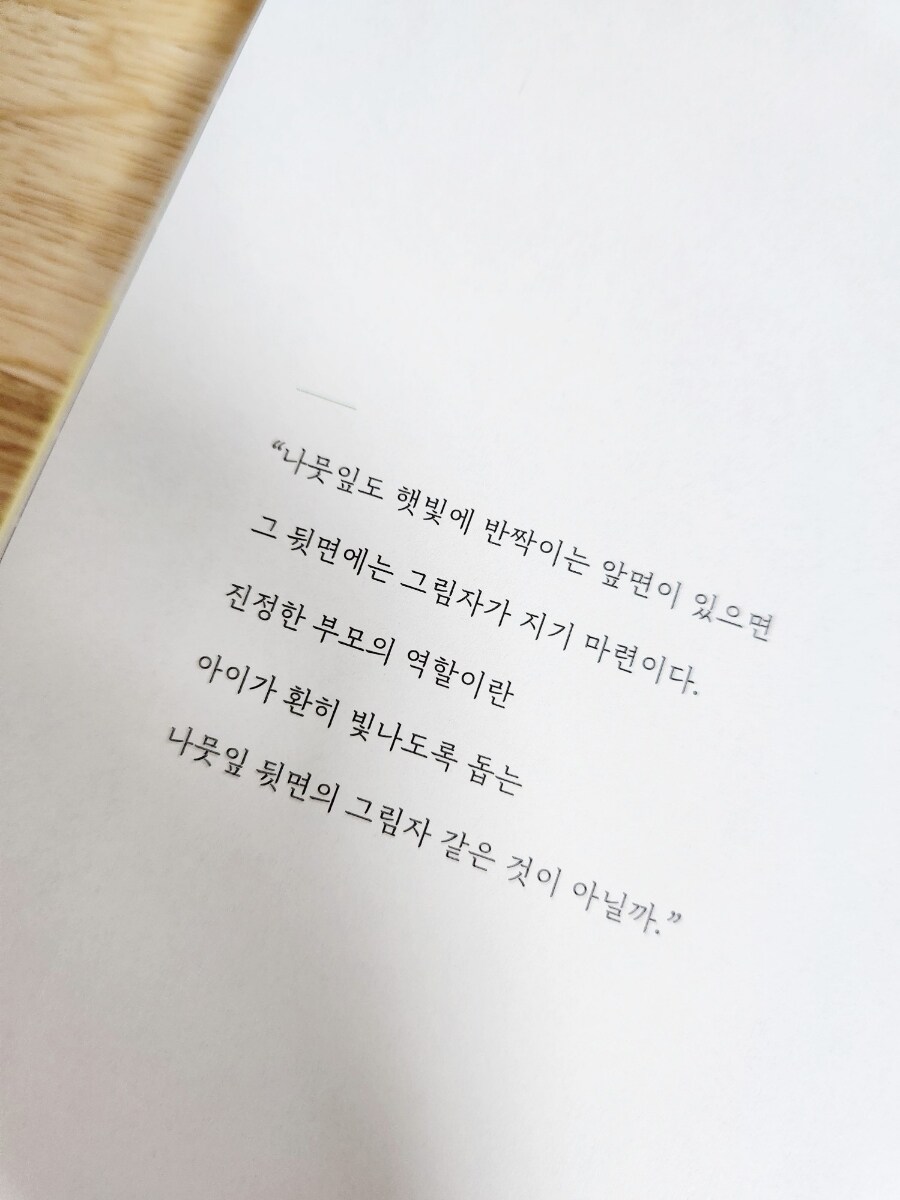 “나뭇잎도 햇빛에 반짝이는 앞면이 있으면
그 뒷면에는 그림자가 지기 마련이다.
진정한 부모의 역할이란
아이가 환히 빛나도록 돕는
나뭇잎 뒷면의 그림자 같은 것이 아닐까.”